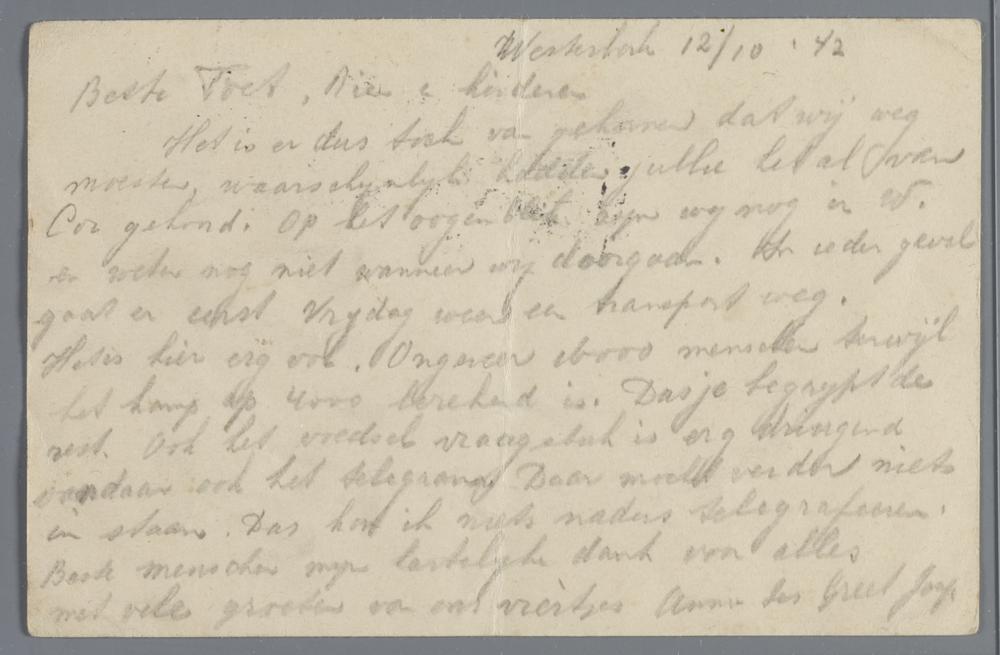 Westerbork 12/10 '42
Beste Toet, Rie e kinderen
Het is er dus toch van gekomen dat wij weg
moesten, waarschynlyk hadden jullie het al van
Cor gehoord. Op het oogenblik zyn wy nog in W.
en weten nog niet wanneer wy doorgaan. In ieder geval
gaat er eerst Vrydag weer een transport weg.
Het is hier erg vol. Ongeveer menschen terwijl
het kamp op 4000 berekend is. Dus je begrypt de
rest. Ook het voedsel vraagstuk is erg dringend
vandaar ook het telegram. Daar mocht verder niets
in staan. Dus kon ik niets naders telegrafeeren.
Beste menschen myn hartelyke dank voor alles
met vele groeten van ons viertjes Greet